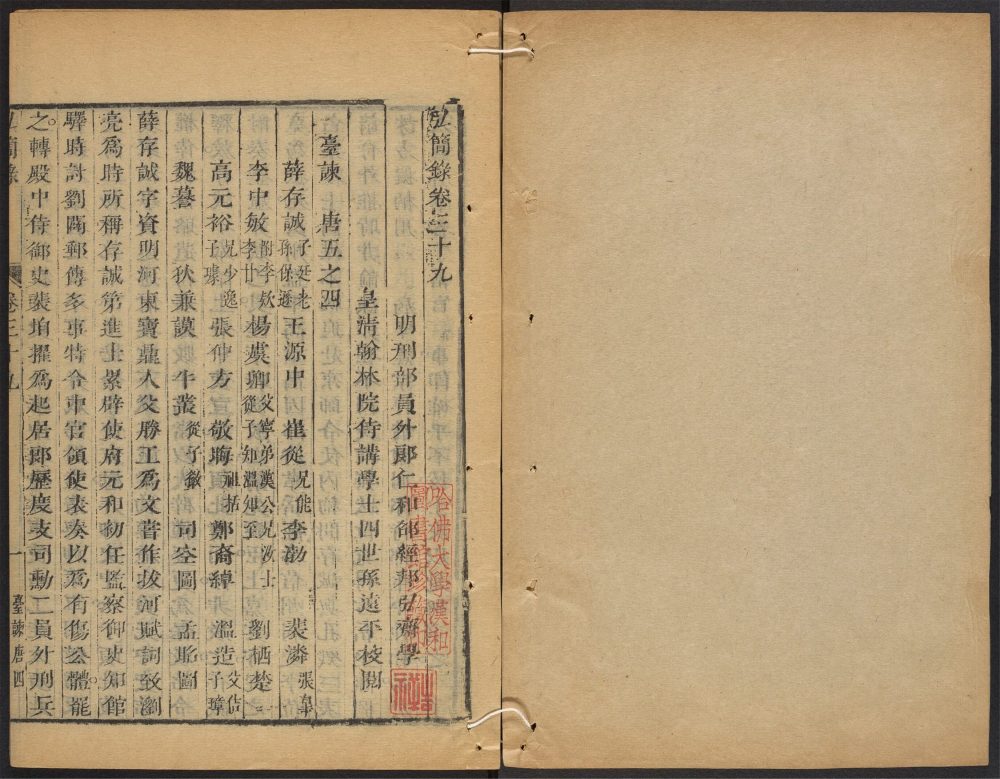 弘簡錄卷三十九
明刑部員外郎仁和邵經邦弘齋學
皇清翰林院侍講學士四世孫遠平校閱
臺諫 唐五之四
薛存誠 子廷老 孫保遜 王源中 崔從 兄能 李渤 裴潾 張皋
李中敏 附李款 李甘 楊虞卿 父寧弟漢公兄汝士 從子知溫知至 劉栖楚
高元裕 兄少逸 子璩 張仲方 敬晦 祖括 鄭裔綽 溫造 父佶 子璋
魏謩 狄兼謨 牛叢 從子徽 司空圖 孟昭圖
薛存誠字資明河東寶鼎人父勝工爲文嘗作拔河賦詞致瀏
亮爲時所稱存誠第進士累辟使府元和初任監察御史知館
驛時討劉闢郵傳多事特令中官領使表奏以爲有傷公體罷
之轉殿中侍御史裴垍擢爲起居郎歷度支司勳工員外刑兵
弘簡錄 卷三十九 一 臺諫唐四
哈佛大學漢和
圖書館珍藏印